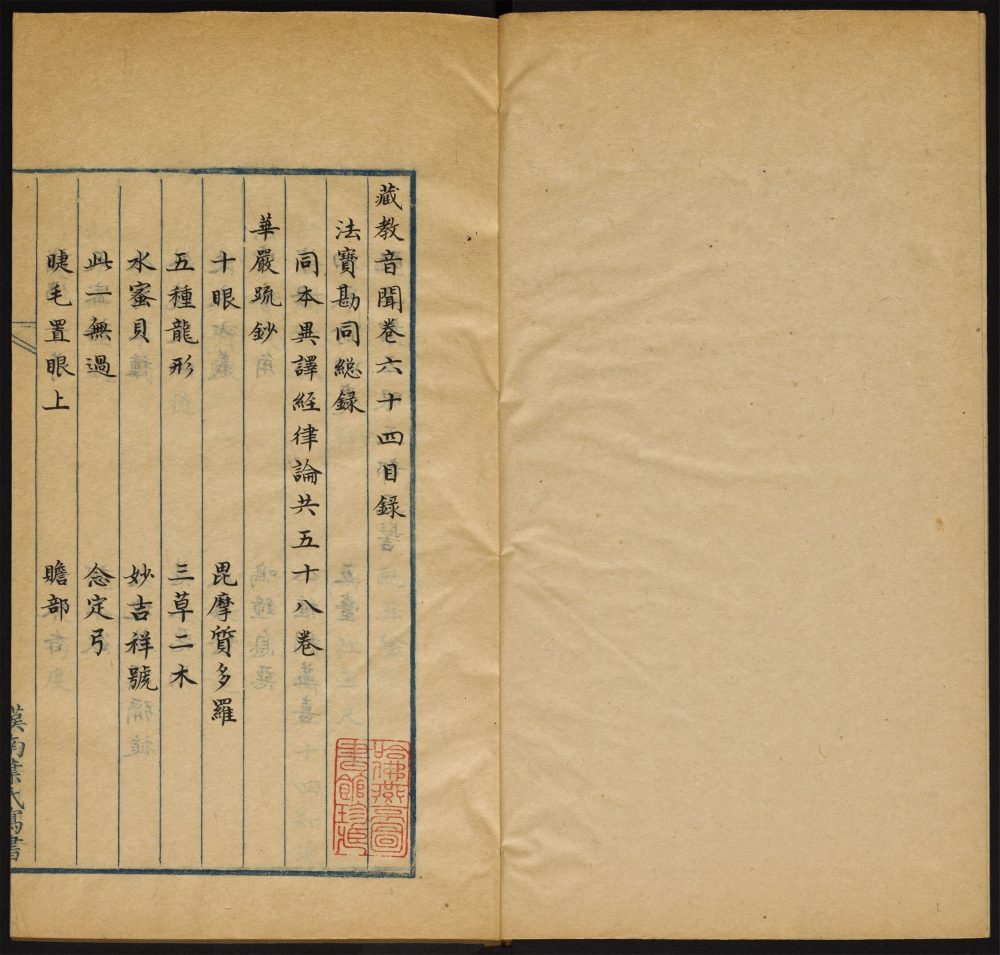 藏教音聞卷六十四目錄
法寶勘同総録
同本異譯經律論共五十八卷
華嚴疏鈔
十眼 毘摩質多羅
五種龍形 三草二木
水蜜貝 妙吉祥號
此一無過 念定弓
睫毛置眼上 贍部
哈佛燕京圖
書館珍藏
漢陽葉氏寫書